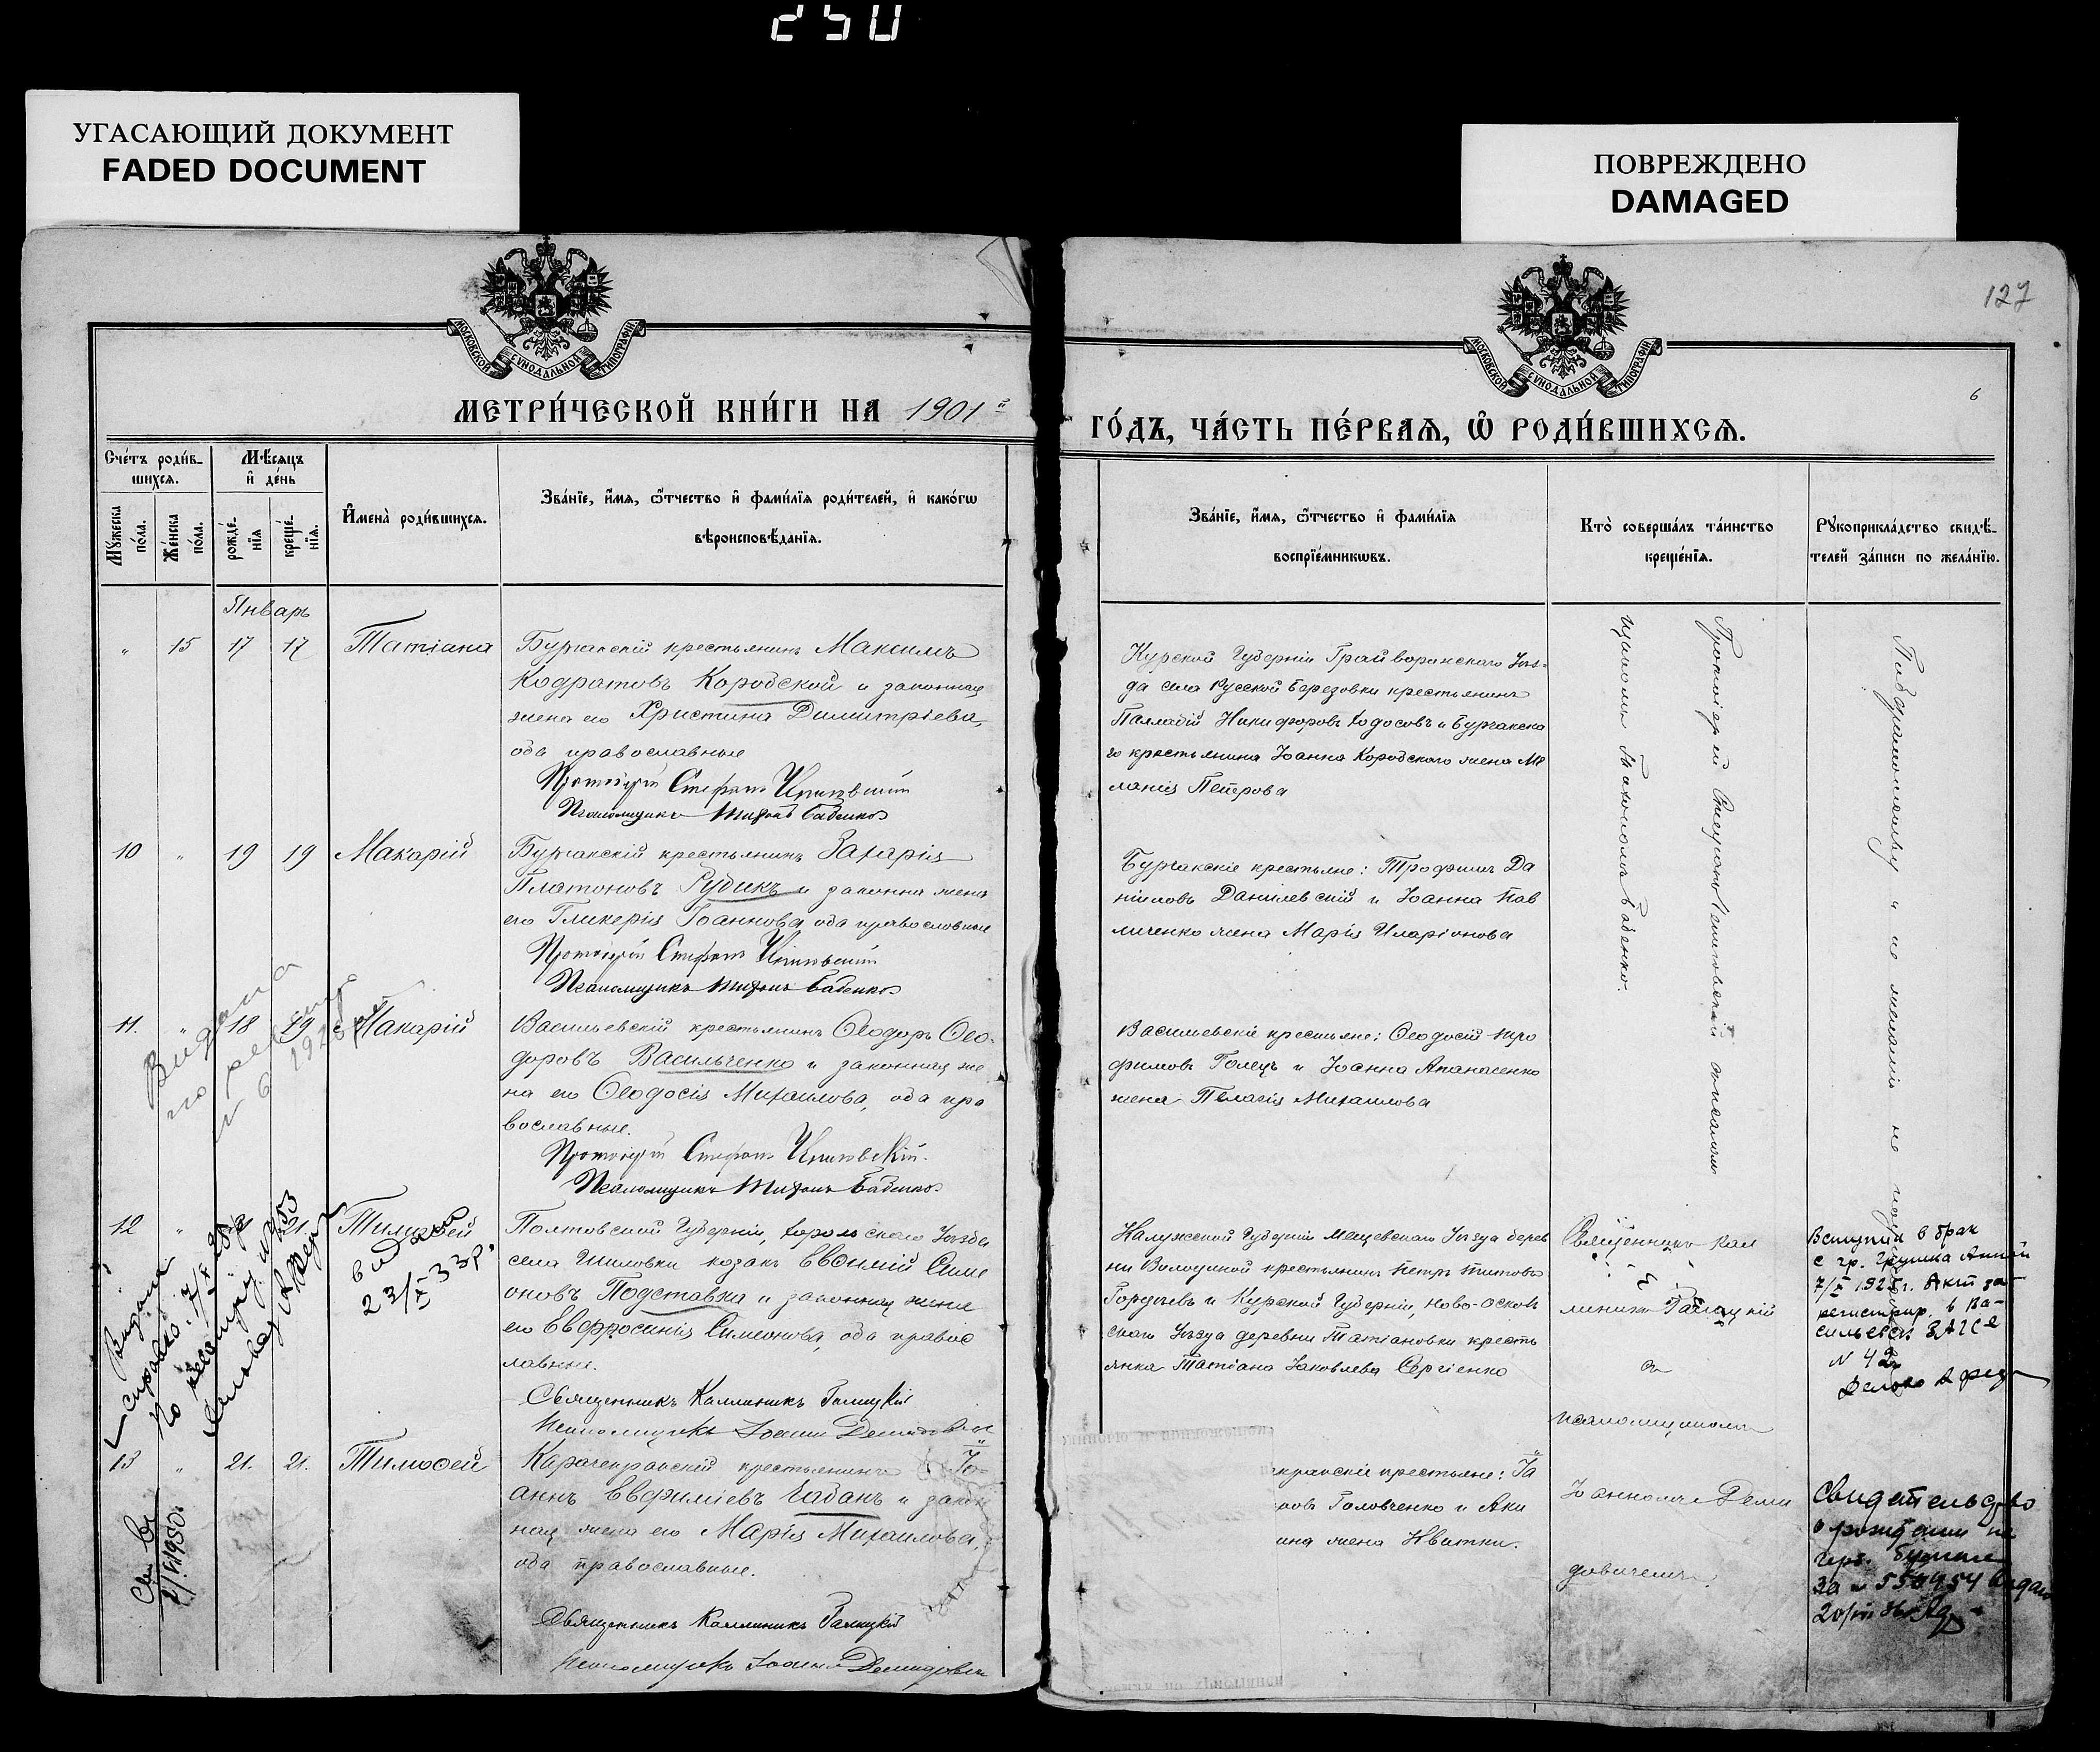 250
УГАСАЮЩИЙ ДОКУМЕНТ
FADED DOCUMENT
ПОВРЕЖДЕНО
DAMAGED
127
6
МОСКОВСКОЙ СУНОДАЛЬНОЙ ТИПОГРАФІИ
МОСКОВСКОЙ СУНОДАЛЬНОЙ ТИПОГРАФІИ
МЕТРИ́ЧЕСКОЙ КНИ́ГИ НА 1901й
ГО́ДЪ, ЧА́СТЬ ПЕ́РВАѦ, Ѡ РОДИ́ВШИХСѦ.
Сче́тъ роди́в-
шихсѧ.
Мѣсѧцъ
и де́нь
Мꙋжеска
по́ла.
Же́нска
по́ла.
рожде́-
нїѧ
креще́-
нїѧ.
Имена̀ роди́вшихсѧ.
Зва́нїе, и́мѧ, ѻ҆́тчество и фами́лїѧ роди́телей, и како́гѡ
вѣроисповѣ́данїѧ.
Зва́нїе, и́мѧ, ѻ҆́тчество и фами́лїѧ
воспрїе́мникѡвъ.
Кто̀ соверша́лъ та́инство
креще́нїѧ.
Рꙋкоприкла́дство свидѣ́-
телей за́писи по жела́нїю.
Январь
" 15 17 17 Татіана
Бурчакскій крестьянинъ Максимъ
Кодратовъ Коробской и законная
жена его Христина Димитріева,
оба православные
Протоіерей Стефанъ
Псаломщикъ Тихонъ Бабенко
Курской Губерніи Грайворонскаго Уѣз-
да села Русской Березовки крестьянинъ
Палладій Никифоровъ Ходосовъ и Бурчакска
го крестьянина Іоанна Коробскаго жена Ме
ланія Петрова
Протоіерей Стефанъ съ псалом
щикомъ Тихономъ Бабенко.
10 " 19 19 Макарій
Бурчакскій крестьянинъ Захарія
Платоновъ Рубикъ и законна жена
его Гликерія Іоаннова, оба православные
Протоіерей Стефанъ
Псаломщикъ Тихонъ Бабенко
Бурчакскіе крестьяне: Трофимъ Да
ніиловъ Данилевскій и Іоанна Пав
личенко жена Марія Иларіонова
11. " 18 19 Макарій
Васильевскій крестьянинъ Ѳеодоръ Ѳео-
доровъ Васильченко и законная же
на его Ѳеодосія Михаилова, оба пра
вославные.
Протоіерей Стефанъ
Псаломщикъ Тихонъ Бабенко
Васильевскіе крестьяне: Ѳеодосій Тро
фимовъ Голецъ и Іоанна Апанасенко
жена Пелагія Михаилова
12 " 21. Тимоѳей
Полтовской Губерніи, Хорольскаго Уѣзда
села Шиловки козакъ Евѳимій Симе
оновъ Подставка и законная жена
его Евфросинія Симеонова, оба правос
лавные.
Священникъ Каллиникъ Галицкій
Псаломщикъ Іоаннъ Демидовичъ
Калужской Губерніи Мещевскаго Уѣзда дерев
ни Володиной крестьянинъ Петръ Титовъ
Гордѣевъ и Курской Губерніи, Ново-Осколь
скаго Уѣзда деревни Татіановки кресть
янка Татіана Іаковлева Сергіенко
Священникъ Кал
линикъ Галицкій
съ
псаломщикомъ
Вступил в брак
с гр. Грушка Анной
7/X 1925г. Акт за-
регистрир. в Ва-
сильевск ЗАГСе
N 42
13 " 21. 21. Тимоѳей
Карачекракскій крестьянинъ Іо-
аннъ Евфиміевъ Чабанъ и закон
ная жена его Марія Михаилова,
оба православные.
Священникъ Каллиникъ Галицкій
Псаломщикъ Іоаннъ Демидовичъ
кракскіе крестьяне: Га
новъ Головченко и Аки
ина жена Квитки.
Іоанномъ Деми
довичемъ.
Свидетельство
о рождении на
герб. бумаге
за N 550954 выдано
Видана
23/X-33р.
1928